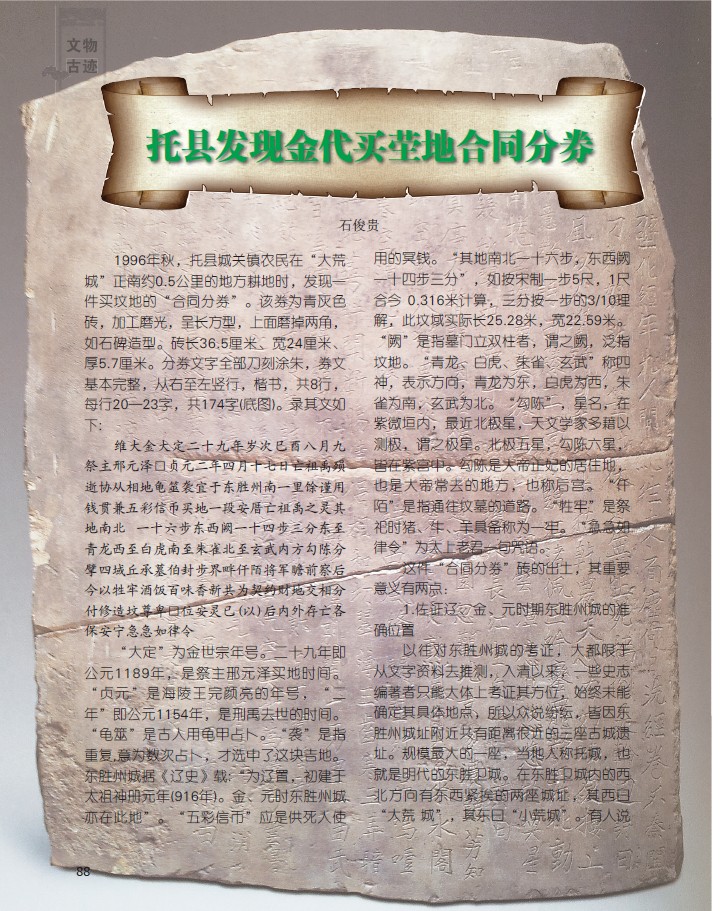 文物
古迹
托县发现金代买茔地合同分券
石俊贵
1996年秋，托县城关镇农民在“大荒
城”正南约0.5公里的地方耕地时，发现一
件买坟地的“合同分券”。该券为青灰色
砖，加工磨光，呈长方型，上面磨掉两角，
如石碑造型。砖长36.5厘米、宽24厘米、
厚5.7厘米。分券文字全部刀刻涂朱，券文
基本完整，从右至左竖行，楷书，共8行，
每行20—23字，共174字(底图)。录其文如
下：
维大金大定二十九年岁次己酉八月九
祭主邢元泽□贞元二年四月十七日亡祖禹项
逝协从相地龟筮袭宜于东胜州南一里馀谨用
钱贯兼五彩信币买地一段安厝亡祖禹之灵其
地南北 一十六步东西阙一十四步三分东至
青龙西至白虎南至朱雀北至玄武内方勾陈分
擘四域丘承墓伯封步界畔仟陌将军瞻前察后
今以牲牢酒饭百味香新共为契约财地交相分
付修造坟尊卑口位安灵已(以)后内外存亡各
保安宁急急如律令
“大定”为金世宗年号。二十九年即
公元1189年，是祭主邢元泽买地时间。
“贞元”是海陵王完颜亮的年号，“二
年”即公元1154年，是刑禹去世的时间。
“龟筮”是古人用龟甲占卜。“袭”是指
重复,意为数次占卜，才选中了这块吉地。
东胜州城据《辽史》载：“为辽置，初建于
太祖神册元年(916年)。金、元时东胜州城
亦在此地”。“五彩信币”应是供死人使
用的冥钱。“其地南北一十六步，东西阙
一十四步三分”，如按宋制一步5尺，1尺
合今 0.316米计算，三分按一步的3/10理
解，此坟域实际长25.28米，宽22.59米。
“阙”是指墓门立双柱者，谓之阙，泛指
坟地。“青龙、白虎、朱雀、玄武”称四
神，表示方向，青龙为东，白虎为西，朱
雀为南，玄武为北。“勾陈”，星名，在
紫微垣内，最近北极星，天文学家多藉以
测极，谓之极星。北极五星，勾陈六星，
皆在紫宫中。勾陈是大帝正妃的居住地，
也是大帝常去的地方，也称后宫。“仟
陌”是指通往坟墓的道路。“牲牢”是祭
祀时猪、牛、羊具备称为一牢。“急急如
律令”为太上老君一句咒语。
这件“合同分券”砖的出土，其重要
意义有两点：
1.佐证辽、金、元时期东胜州城的准
确位置
以往对东胜州城的考证，大都限于
从文字资料去推测，入清以来，一些史志
编著者只能大体上考证其方位，始终未能
确定其具体地点，所以众说纷纭，皆因东
胜州城址附近只有距离很近的三座古城遗
址。规模最大的一座，当地人称托城，也
就是明代的东胜卫城。在东胜卫城内的西
北方向有东西紧挨的两座城址，其西曰
“大荒 城”，其东曰“小荒城”。有人说
88